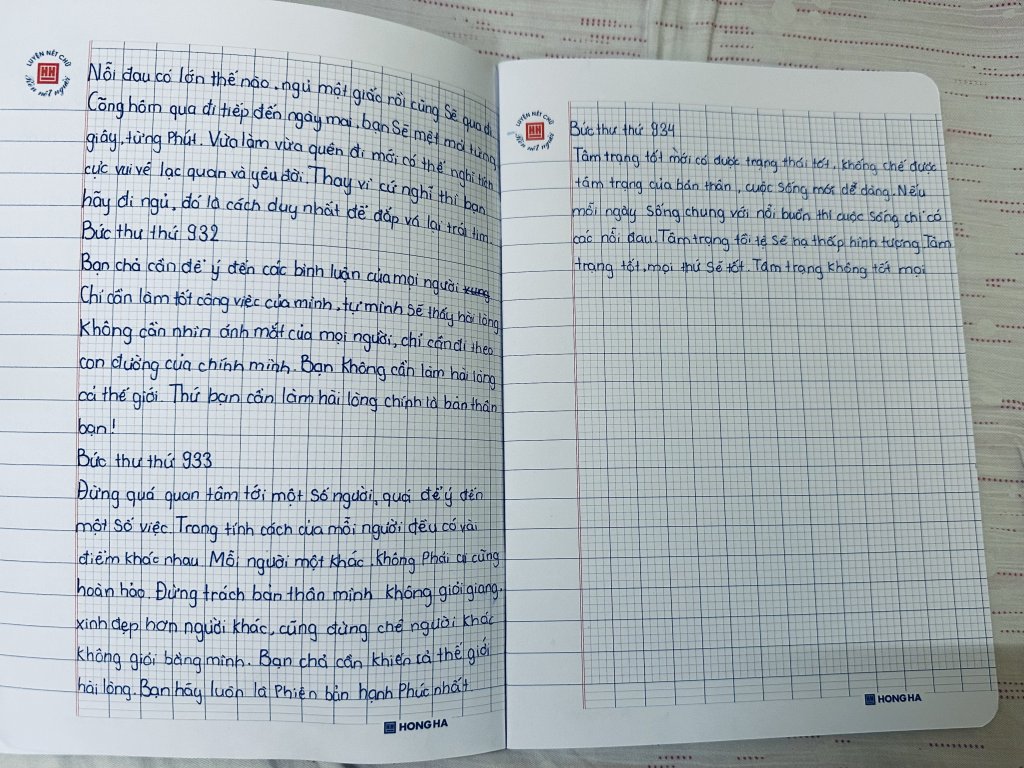 LUYỆN NÉT CHỮ
Rèn nết người
Nỗi đau có lớn thế nào, ngủ một giấc rồi cũng sẽ qua đi
Cõng hôm qua đi tiếp đến ngày mai, bạn sẽ mệt mỏi từng
giây, từng phút. Vừa làm vừa quên đi mới có thể nghĩ tích
cực vui vẻ lạc quan và yêu đời. Thay vì cứ nghĩ thì bạn
hãy đi ngủ, đó là cách duy nhất để đắp vá lại trái tim.
Bức thư thứ 932
Bạn chả cần để ý đến các bình luận của mọi người xung
Chỉ cần làm tốt công việc của mình, tự mình sẽ thấy hài lòng
Không cần nhìn ánh mắt của mọi người, chỉ cần đi theo
con đường của chính mình. Bạn không cần làm hài lòng
cả thế giới. Thứ bạn cần làm hài lòng chính là bản thân
bạn!
Bức thư thứ 933
Đừng quá quan tâm tới một số người, quá để ý đến
một số việc. Trong tính cách của mỗi người đều có vài
điểm khác nhau Mỗi người một khác, không phải ai cũng
hoàn hảo. Đừng trách bản thân mình không giỏi giang,
xinh đẹp hơn người khác, cũng đừng chê người khác
không giỏi bằng mình. Bạn chả cần khiến cả thế giới
hài lòng. Bạn hãy luôn là phiên bản hạnh phúc nhất.
HONG HA
LUYỆN NÉT CHỮ
Rèn nết người
Bức thư thứ 934
Tâm trạng tốt mới có được trạng thái tốt, khống chế được
tâm trạng của bản thân, cuộc sống mới dễ dàng. Nếu
mỗi ngày sống chung với nỗi buồn thì cuộc sống chỉ có
các nỗi đau. Tâm trạng tồi tệ sẽ hạ thấp hình tượng. Tâm
trạng tốt, mọi thứ sẽ tốt. Tâm trạng không tốt mọi
HONG HA